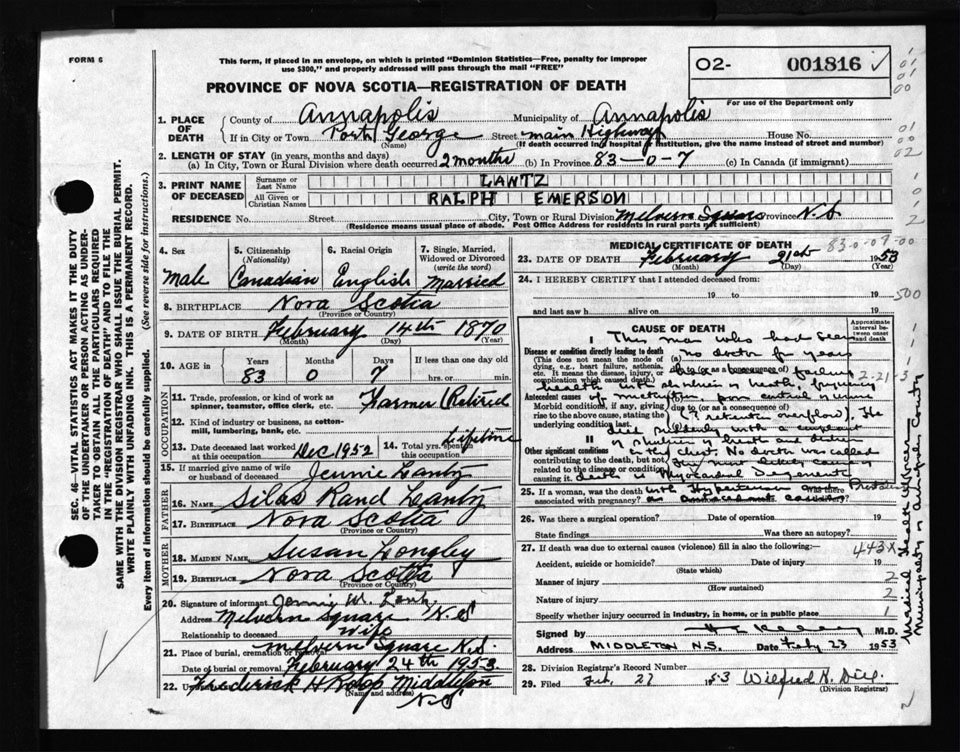 FORM 6
This form, if placed in an envelope, on which is printed "Dominion Statistics—Free, penalty for improper
use $300," and properly addressed will pass through the mail "FREE"
O2- 001816 ✓
For use of the Department only
PROVINCE OF NOVA SCOTIA—REGISTRATION OF DEATH
1. PLACE OF DEATH
County of Annapolis Municipality of Annapolis
If in City or Town Port George Street main Highway House No.
(Name) (If death occurred in a hospital or institution, give the name instead of street and number)
2. LENGTH OF STAY (in years, months and days)
(a) In City, Town or Rural Division where death occurred 2 months (b) In Province 83-0-7 (c) In Canada (if immigrant)
3. PRINT NAME OF DECEASED
Surname or Last Name LANTZ
All Given or Christian Names RALPH EMERSON
RESIDENCE No. Street City, Town or Rural Division Melvern Square Province N.S
(Residence means usual place of abode. Post Office Address for residents in rural parts not sufficient)
4. Sex
Male
5. Citizenship (Nationality)
Canadian
6. Racial Origin
English
7. Single, Married, Widowed or Divorced (write the word)
Married
8. BIRTHPLACE Nova Scotia
(Province or Country)
9. DATE OF BIRTH February 14th 1870
(Month) (Day) (Year)
10. AGE in Years Months Days If less than one day old
83 0 7 hrs. or min.
OCCUPATION
11. Trade, profession, or kind of work as
spinner, teamster, office clerk, etc. Farmer (Retired)
12. Kind of industry or business, as cotton-
mill, lumbering, bank, etc.
13. Date deceased last worked at this occupation Dec 1952 14. Total yrs. spent in this occupation Lifetime
15. If married give name of wife
or husband of deceased Jennie Lantz
FATHER
16. Name Silas Rand Lantz
17. Birthplace Nova Scotia
(Province or Country)
MOTHER
18. MAIDEN NAME Susan Longley
19. BIRTHPLACE Nova Scotia
(Province or Country)
20. Signature of informant Jennie W. Lantz
Address Melvern Square N.S
Relationship to deceased Wife
21. Place of burial, cremation or removal Melvern Square N.S.
Date of burial or removal February 24th 1953
22. Frederick H Roop Middleton
(Name and address)
N.S
MEDICAL CERTIFICATE OF DEATH
83-0-07-00
23. DATE OF DEATH February 21st 1953
(Month) (Day) (Year)
24. I HEREBY CERTIFY that I attended deceased from:
19 to 19
and last saw h alive on 19
500
CAUSE OF DEATH
Approximate interval between onset and death
I This man who had seen
Disease or condition directly leading to death no doctor for years
(This does not mean the mode of (a)
dying, e.g., heart failure, asthenia, due to (or as a consequence of) failing
etc. It means the disease, injury, or
complication which caused death.) health with shortness of breath, frequency
2-21-3
Antecedent causes of micturition, poor control of urine
Morbid conditions, if any, giving due to (or as a consequence of)
rise to the above cause, stating the (? retention overflow). He
underlying condition last. died suddenly with a complaint
II of shortness of breath and
Other significant conditions in his chest. No doctor was called
contributing to the death, but not The most likely cause of
related to the disease or condition
causing it. death is Myocardial
25. If a woman, was the death with Hypertension
associated with pregnancy?
26. Was there a surgical operation? Date of operation 19
State findings Was there an autopsy?
27. If death was due to external causes (violence) fill in also the following:—
443X
Accident, suicide or homicide? Date of injury 19
(State which)
Manner of injury 2
(How sustained)
Nature of injury 2
Specify whether injury occurred in industry, in home, or in public place 1
Signed by M.D.
Address MIDDLETON N.S. Date Feb 23 1953
28. Division Registrar's Record Number
29. Filed Feb. 27 1953 Wilfred
(Division Registrar)
Medical Health Officer
Municipality of Annapolis County
SEC. 46—VITAL STATISTICS ACT MAKES IT THE DUTY
OF THE UNDERTAKER OR PERSON ACTING AS UNDER-
TAKER TO OBTAIN ALL THE PARTICULARS REQUIRED
IN THE "REGISTRATION OF DEATH" AND TO FILE THE
SAME WITH THE DIVISION REGISTRAR WHO SHALL ISSUE THE BURIAL PERMIT.
WRITE PLAINLY WITH UNFADING INK. THIS IS A PERMANENT RECORD.
Every item of information should be carefully supplied. (See reverse side for instructions.)